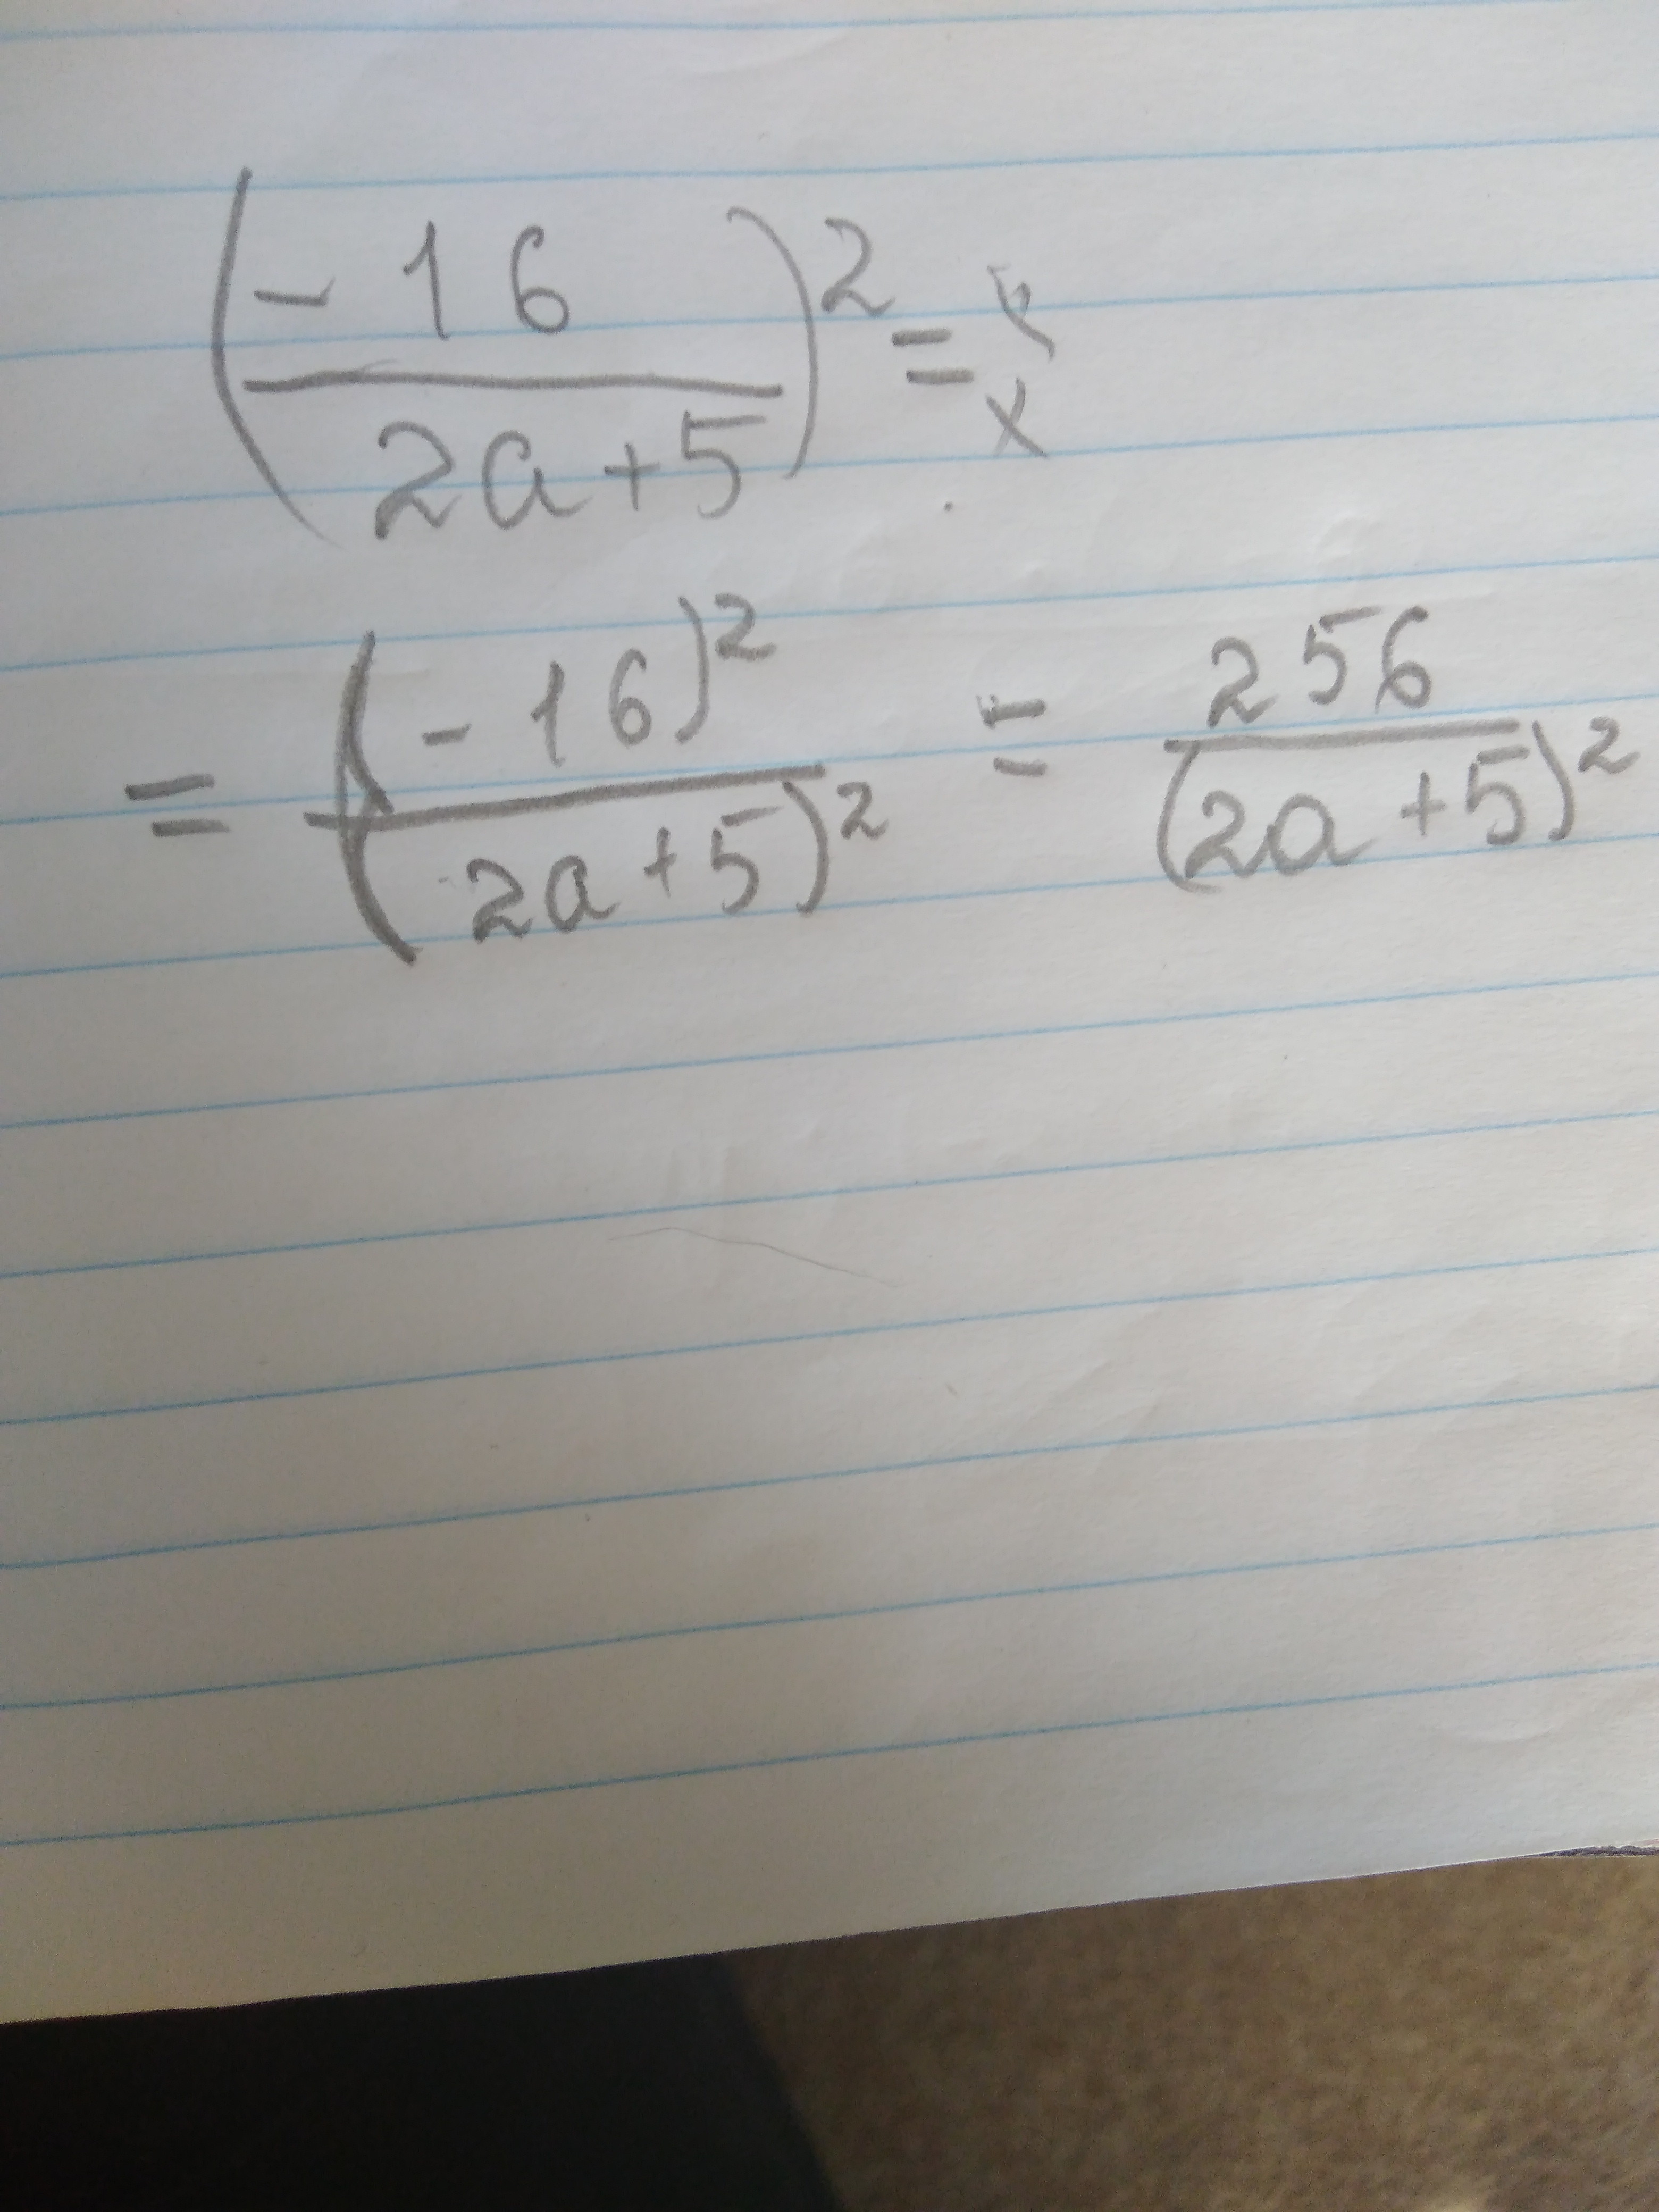 (-16/(2a+5))² =
= (-16)²/(2a+5)² = 256/(2a+5)²